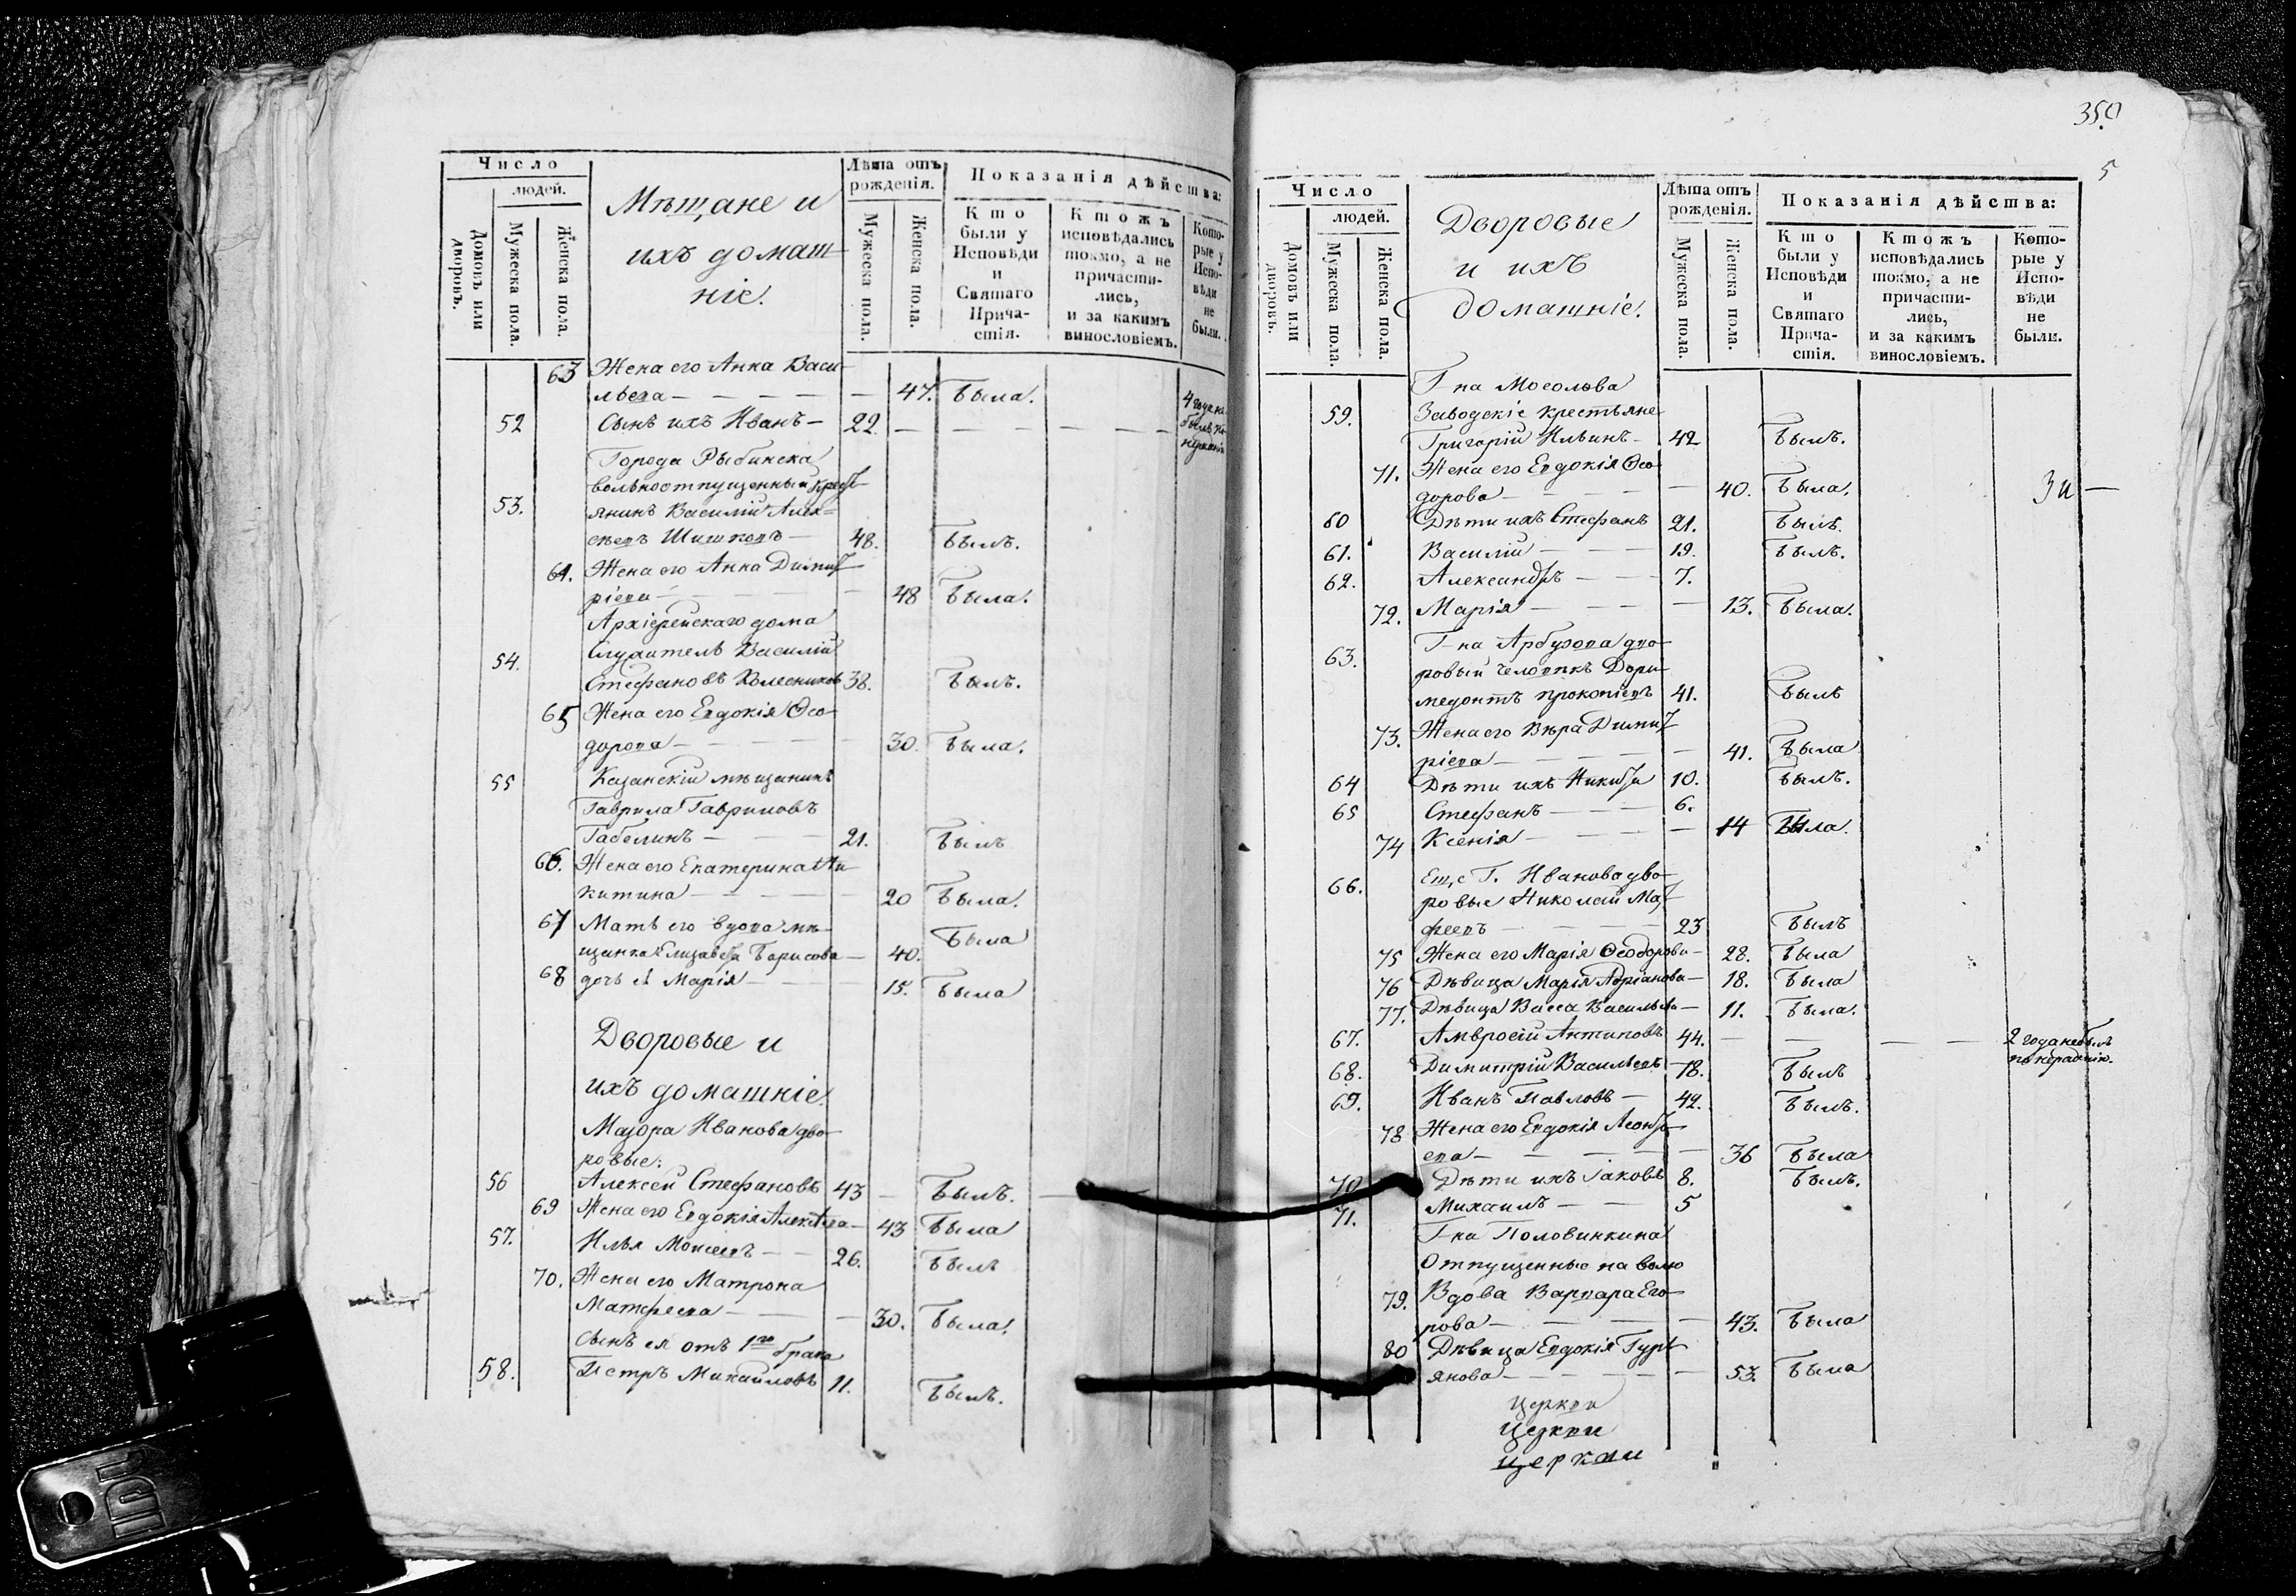 Число
людей.
Домовъ или дворовъ.
Мужеска пола.
Женска пола.
Мѣщане и
ихъ домаш-
ніе.
Лѣта отъ рожденія.
Мужеска пола.
Женска пола.
Показанія дѣйства:
Кто были у Исповѣди и Святаго Причастія.
Ктожъ исповѣдались токмо, а не причастились, и за какимъ винословіемъ.
Которые у Исповѣди не были.
63 Жена его Анна Васи-
льева — 47. Была.
52 Сынъ ихъ Иванъ — 22. — 4 года не
былъ по
нераденію
Города Рыбинска
вольноотпущенный крест-
53. янинъ Василій Алек-
сѣевъ Шишковъ — 48. Былъ.
64. Жена его Анна Димит-
ріева — 48 Была.
Архіерейскаго дома
54. служитель Василій
Стефановъ Колесниковъ 38. Былъ.
65 Жена его Евдокія Ѳео-
дорова — 30. Была.
55 Казанскій мѣщанинъ
Гаврила Гавриловъ
Габелинъ — 21. Былъ
66. Жена его Екатерина Ни-
китина — 20 Была.
67 Мать его вдова мѣ-
щанка Елизавета Борисова — 40. Была
68 дочь ея Марія — 15. Была
Дворовые и
ихъ домашніе.
Маіора Иванова дво-
ровые:
56 Алексей Стефановъ 43 — Былъ. —
69 Жена его Евдокія — 43 Была
57. Илья Моисеевъ — 26. Былъ
70. Жена его Матрона
Матфеева — 30. Была.
Сынъ ея отъ 1го брака
58. Петръ Михайловъ 11. Былъ.
350
5
Число
людей.
Домовъ или дворовъ.
Мужеска пола.
Женска пола.
Дворовые
и ихъ
домашніе.
Лѣта отъ рожденія.
Мужеска пола.
Женска пола.
Показанія дѣйства:
Кто были у Исповѣди и Святаго Причастія.
Ктожъ исповѣдались токмо, а не причастились, и за какимъ винословіемъ.
Которые у Исповѣди не были.
Г-на Мосолова
59. Заводскіе крестьяне
Григорій Ильинъ — 42 Былъ.
71. Жена его Евдокія Ѳео-
дорова — 40. Была.
60 Дѣти ихъ Стефанъ 21. Былъ.
61. Василій — 19. Былъ.
62. Александръ — 7.
72. Марія — 13. Была.
Г-на Арбузова дво-
63. ровый человѣкъ Дори-
медонтъ Прокопіевъ 41. Былъ
73. Жена его Вѣра Димит-
ріева — 41. Была
64 Дѣти ихъ Никита 10. Былъ.
65 Стефанъ — 6.
74 Ксенія — 14 Была.
Еще Г. Иванова дво-
66. ровые Николай Мат-
феевъ — 23 Былъ
75 Жена его Марія Ѳеодорова — 28. Была
76 Дѣвица Марія Адріанова — 18. Была
77. Дѣвица Васса Васильева — 11. Была.
67. Амвросій Антиповъ 44. — 2 года не былъ
по нерадѣнію.
68. Димитрій Васильевъ 18. Былъ
69. Иванъ Павловъ — 42. Былъ.
78 Жена его Евдокія Леонть-
ева — 36 Была
70 Дѣти ихъ Іаковъ 8. Былъ.
71. Михаилъ — 5
Г-на Половинкина
Отпущенные на волю
79. Вдова Варвара Его-
рова — 43. Была
80 Дѣвица Евдокія Гурь-
янова — 53. Была
Церкви
Церкви
Церкви